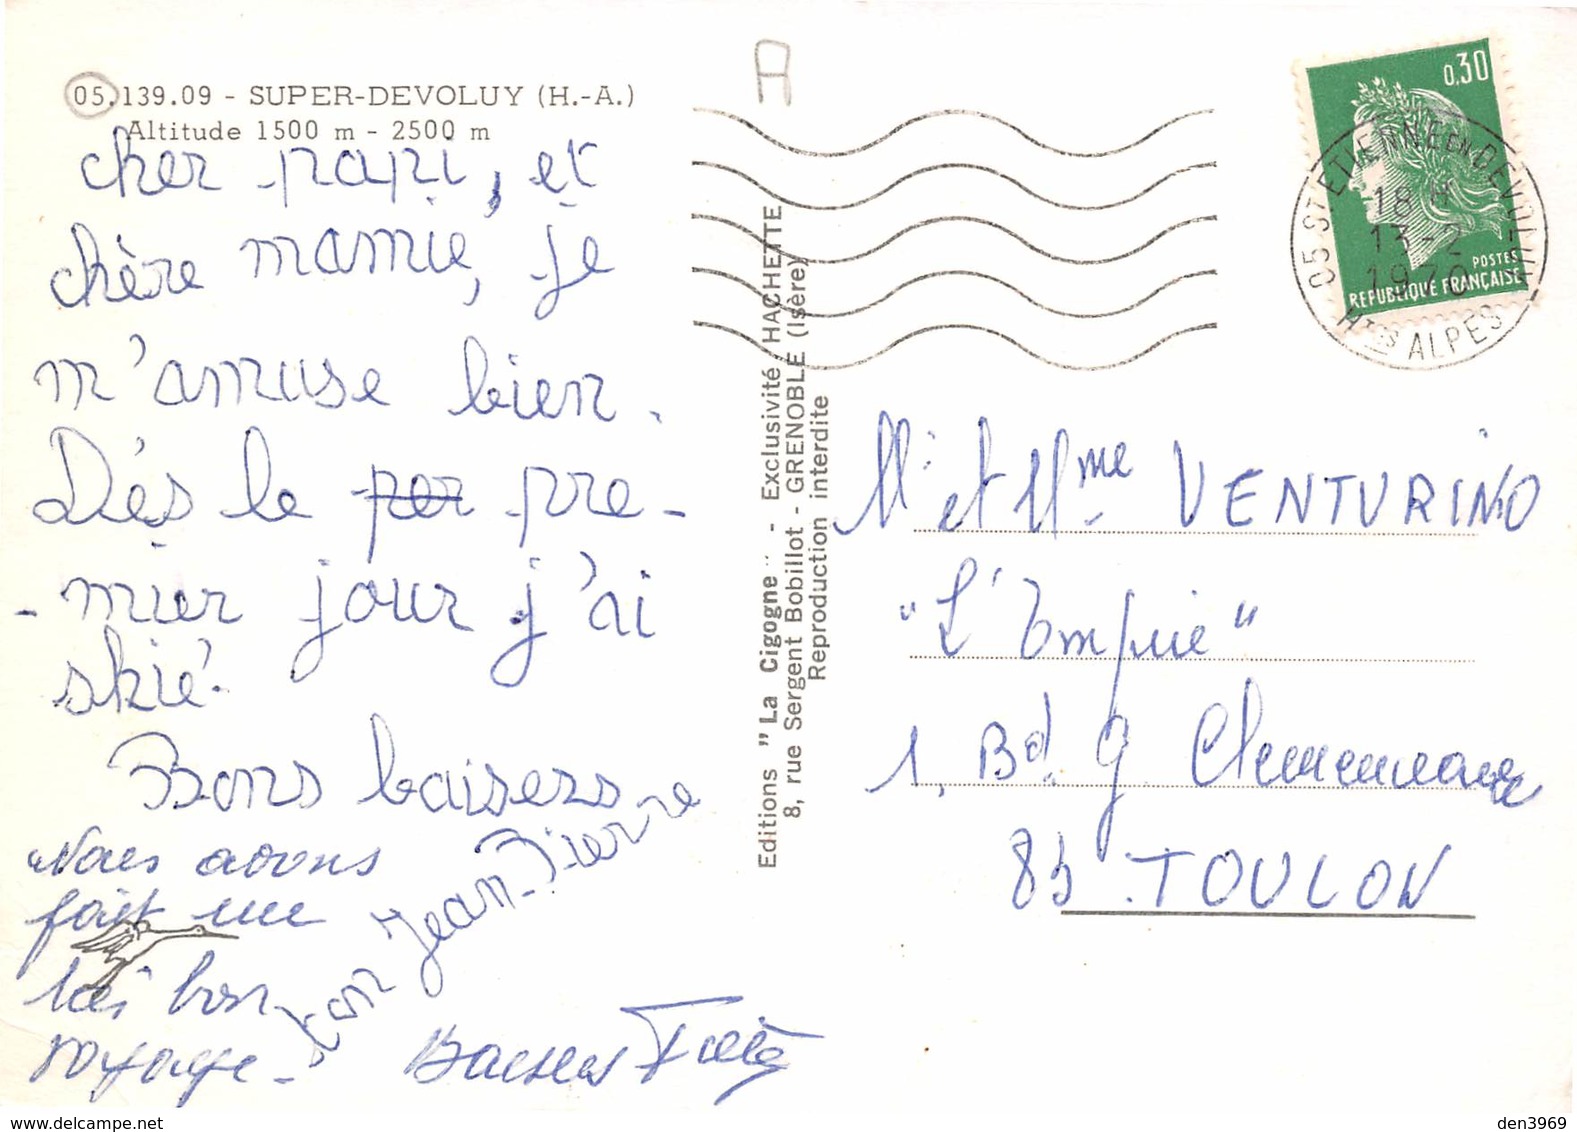 05.139.09 - SUPER-DEVOLUY (H.-A.)
Altitude 1500 m - 2500 m
cher papi, et
chère mamie, je
m'amuse bien.
Dès le per pre-
-mier jour j'ai
skié.
Bons baisers
ton Jean-Pierre
Nous avons
fait une
très bon
voyage -
Baisers
A
Editions "La Cigogne" - Exclusivité HACHETTE
8, rue Sergent Bobillot - GRENOBLE (Isère)
Reproduction interdite
0,30
POSTES
REPUBLIQUE FRANÇAISE
05 ST ETIENNE EN DEVOLUY
18 H
13-2
1970
HTES ALPES
M. et Mme VENTURINO
"L'Empire"
1, Bd. G. Clemenceau
83 . TOULON
www.delcampe.net
den3969